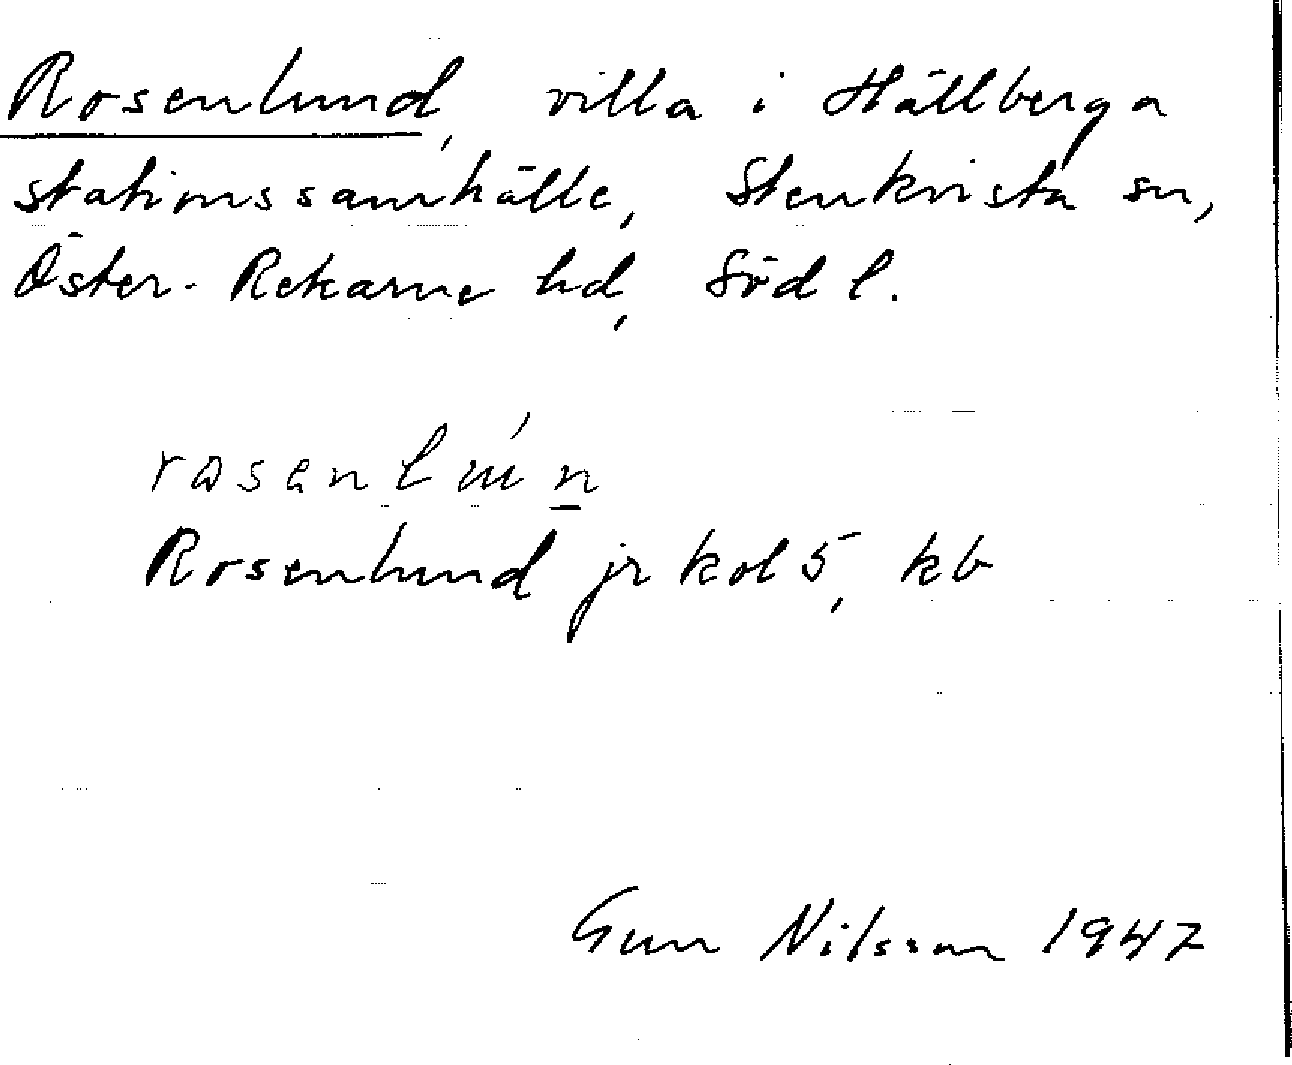 Rosenlund, villa i Hällberga
stationssamhälle, Stenkvista sn,
Öster-Rekarne hd, Söd l.
rosenlún
Rosenlund jr kol 5, kb
Gun Nilsson 1947